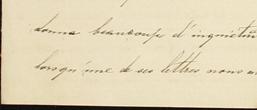 donna beaucoup d'inquiétu
lorsqu'une de ses lettres nous